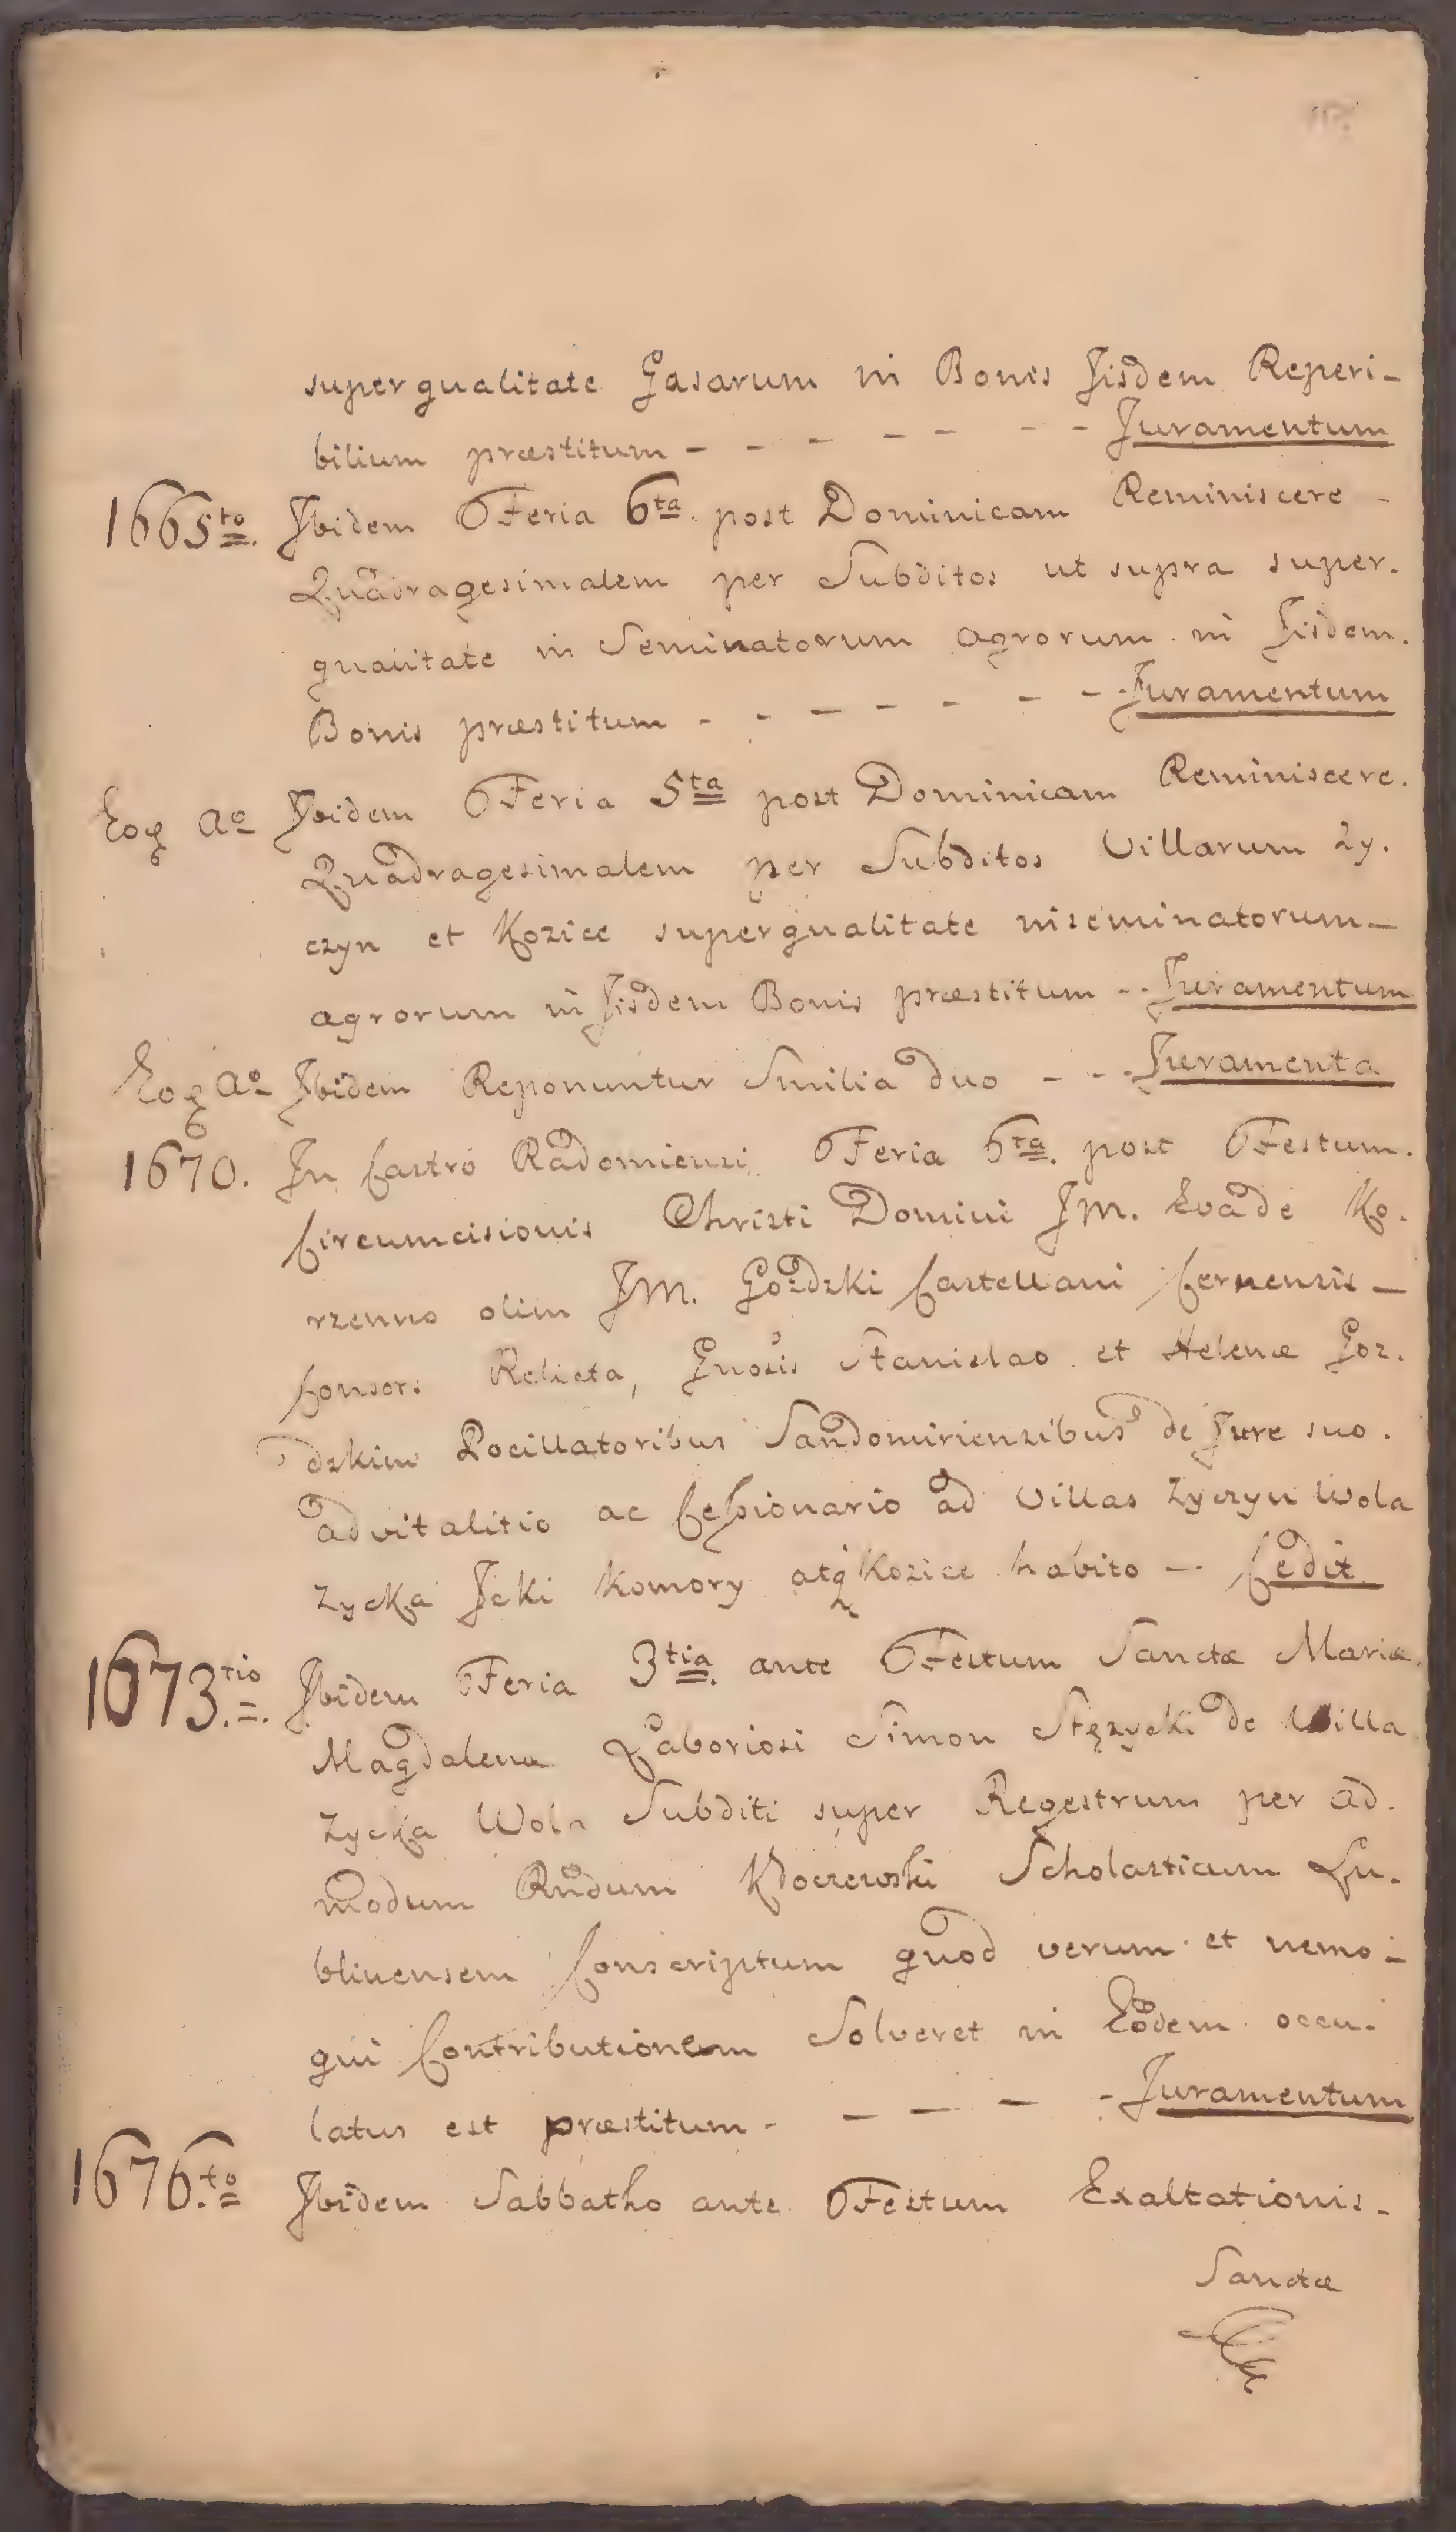 super qualitate Gasarum in Bonis Jisdem Reperi-
bilium præstitum - - - - - - - Juramentum
1665to. Jbidem Feria 6ta post Dominicam Reminiscere -
Quadragesimalem per Subditos ut supra super.
qualitate in Seminatorum agrorum in Jisdem.
Bonis præstitum - - - - - - - Juramentum
Eoq Ao Jbidem Feria 5ta post Dominicam Reminiscere.
Quadragesimalem per Subditos Villarum Zy.
czyn et Kozice super qualitate niseminatorum -
agrorum in Jisdem Bonis præstitum - - Juramentum
Eoq Ao Jbidem Reponuntur Similia duo - - - Juramenta
1670. Jn Castro Radomiensi Feria 6ta. post Festum.
Circumcisionis Christi Domini JM. Eva de Ko.
rzenno olim JM. Gozdzki Castellani Cernensis -
Consors Relicta, Gnosis Stanislao et Helenæ Goz.
dzkim Pocillatoribus Sandomiriensibus de Jure suo.
advitalitio ac Cessionario ad Villas Zyczyn Wola
Zycka Jcki Komory atq Kozice habito - - Cedit
1673.tio Jbidem Feria 3tia. ante Festum Sanctæ Mariæ.
Magdalenæ Laboriosi Simon Stęzycki de Villa
Zycka Wola Subditi super Regestrum per ad.
modum Rndum Kdoczewski Scholasticum Lu.
blinensem Conscriptum quod verum et nemo -
qui Contributionem Solveret in Eodem occu.
latus est præstitum - - - - - Juramentum
1676.to Jbidem Sabbatho ante Festum Exaltationis -
Sanctæ